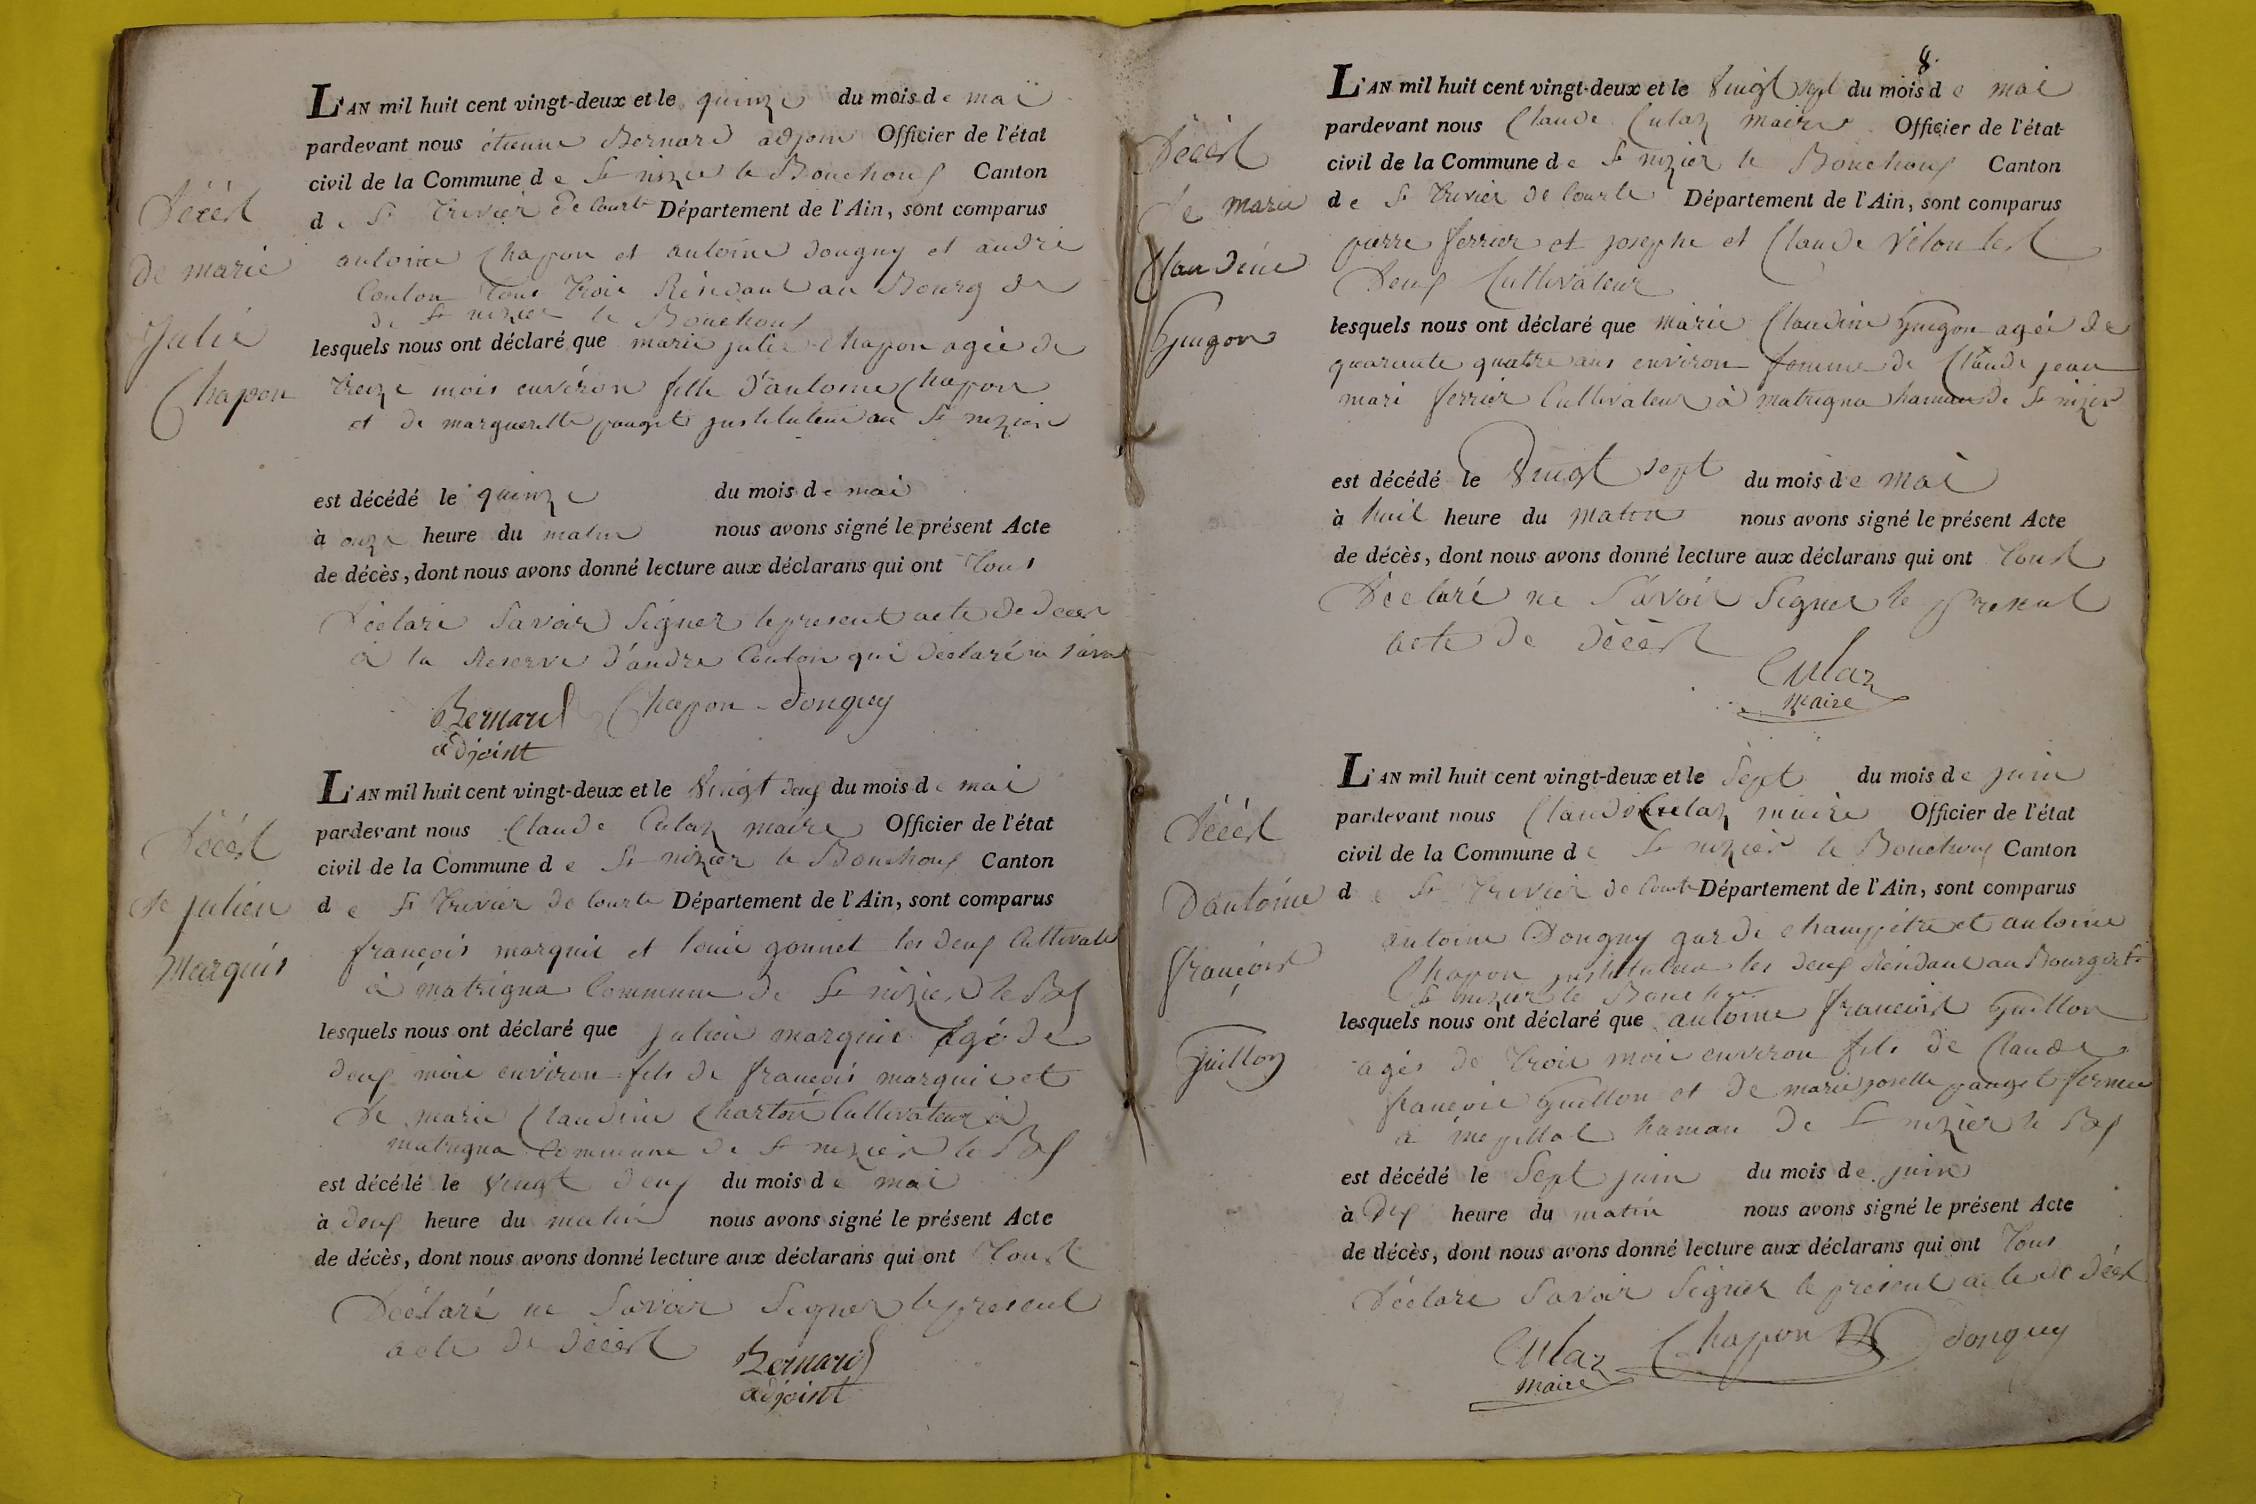 Décést
de marie
Julie
Chapon
L'AN mil huit cent vingt-deux et le quinze du mois de mai
pardevant nous étienne Bernard adjoin Officier de l'état
civil de la Commune de St nizier le Bouchoux Canton
de St Trivier de Courte Département de l'Ain, sont comparus
antoine Chapon et antoine donguy et andré
Couton tous trois Résidant au Bourg de
de St nizier le Bouchoux
lesquels nous ont déclaré que marie julie Chapon agée de
treize mois environ fille d'antoine Chapon
et de margueritte pauget justituteur au St nizier
est décédé le quinze du mois de mai
à onze heure du matin nous avons signé le présent Acte
de décès, dont nous avons donné lecture aux déclarans qui ont tous
Déclaré Savoir Signer le present acte de décèst
à la Reserve d'andré Couton qui déclaré ne savoir
Bernard Chapon donguy
adjoint
Décést
de julien
Marquis
L'AN mil huit cent vingt-deux et le vingt deux du mois de mai
pardevant nous Claude Culaz maire Officier de l'état
civil de la Commune de St nizier le Bouchoux Canton
de St Trivier de Courte Département de l'Ain, sont comparus
françois marquis et louis gonnet les deux Cultivate
à matrigna Commune de St nizier le Bx
lesquels nous ont déclaré que julien marquis agé de
deux mois environ fils de françois marquis et
de marie Claudine Charton Cultivateur à
matrigna Commune de St nizier le Bx
est décédé le vingt deux du mois de mai
à deux heure du matin nous avons signé le présent Acte
de décès, dont nous avons donné lecture aux déclarans qui ont tous
Déclaré ne Savoir Signer le present
acte de décést
Bernard
adjoint
8.
Décést
de marie
Claudine
Guigon
L'AN mil huit cent vingt-deux et le vingt sept du mois de mai
pardevant nous Claude Culaz maire Officier de l'état
civil de la Commune de St nizier le Bouchoux Canton
de St Trivier de Courte Département de l'Ain, sont comparus
pierre ferrier et josephe et Claude
Deux Cultivateur
lesquels nous ont déclaré que marie Claudine Guigon agée de
quarante quatre ans environ femme de Claude jean
mari ferrier Cultivateur à matrigna hamau de St nizier
est décédé le vingt sept du mois de mai
à huit heure du matin nous avons signé le présent Acte
de décès, dont nous avons donné lecture aux déclarans qui ont tous
Déclaré ne Savoir Signer le present
acte de décést
Culaz
maire
Décést
D'antoine
françois
Guillon
L'AN mil huit cent vingt-deux et le Sept du mois de juin
pardevant nous Claude Culaz maire Officier de l'état
civil de la Commune de St nizier le Bouchoux Canton
de St Trivier de Courte Département de l'Ain, sont comparus
antoine Donguy garde champêtre et antoine
Chapon justituteur les deux Résidant au Bourg de
St nizier le Bouchoux
lesquels nous ont déclaré que antoine françois Guillon
agés de trois mois environ fils de Claude
françois Guillon et de marie josette pauget fermier
à hamau de St nizier le Bx
est décédé le Sept juin du mois de juin
à dix heure du matin nous avons signé le présent Acte
de décès, dont nous avons donné lecture aux déclarans qui ont tous
Déclaré Savoir Signer le présent acte de décést
Culaz Chapon donguy
maire